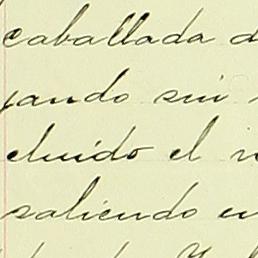 caballada d
jando sin
cluido el
saliendo en